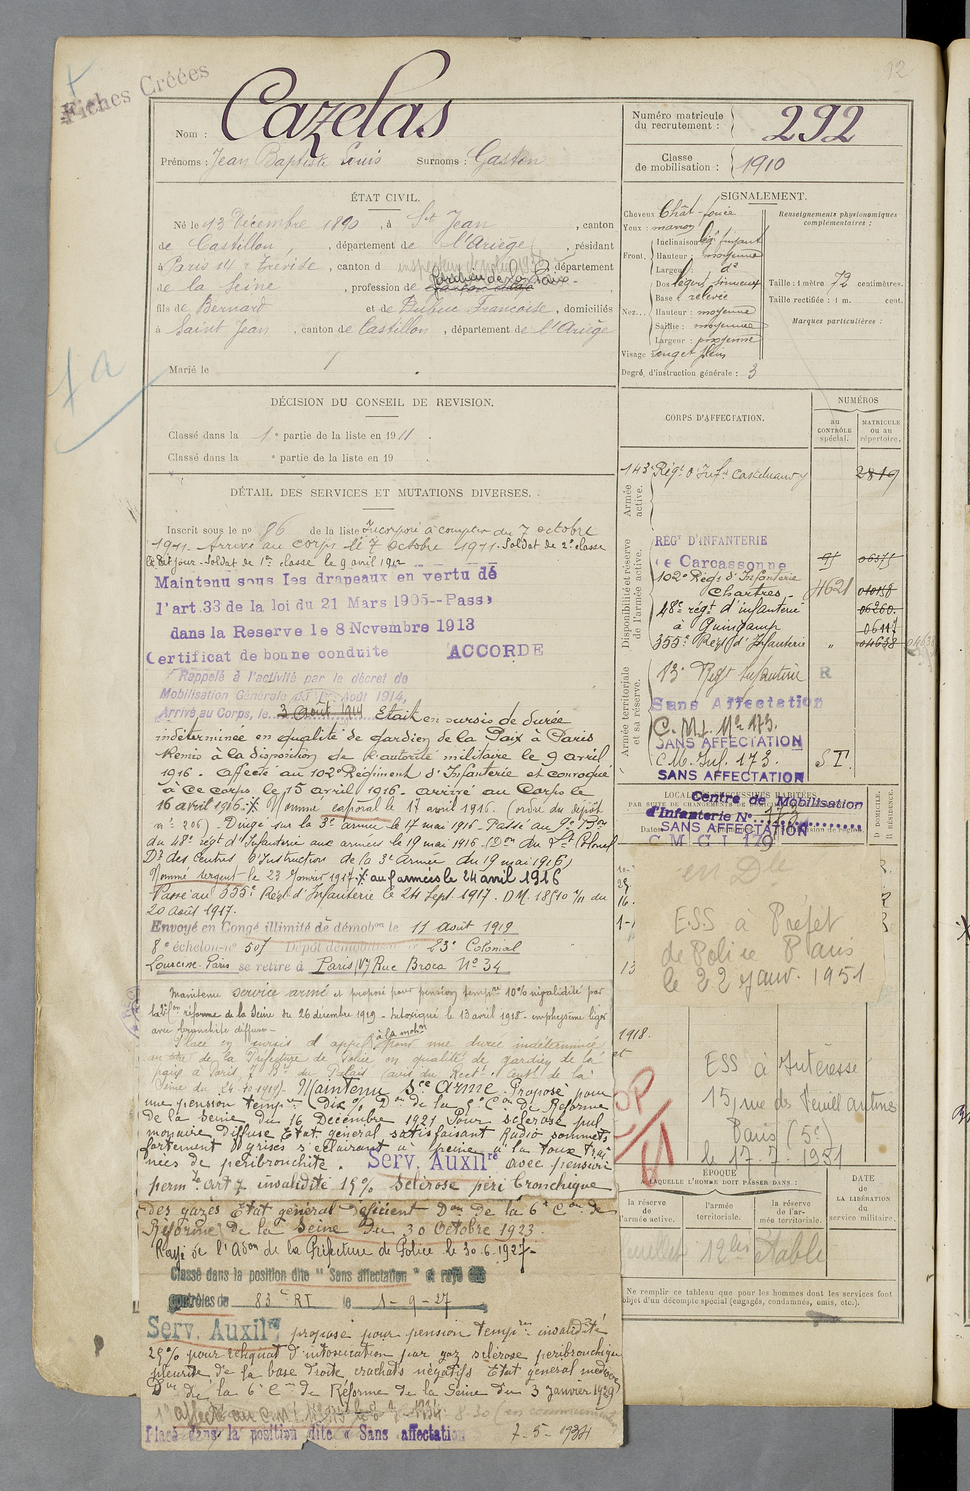 Fiches Créées
12
Nom : Cazelas
Prénoms : Jean Baptiste Louis Surnoms : Gaston
Numéro matricule du recrutement : 292
Classe de mobilisation : 1910
ÉTAT CIVIL.
Né le 13 Décembre 1890, à St Jean, canton
de Castillon, département de l'Ariège, résidant
à Paris 14 r Trévise, canton d département
de la Seine, profession de gardien de la Paix
fils de Bernard et de Dubuc Françoise, domiciliés
à Saint Jean, canton de Castillon, département de l'Ariège
Marié le
SIGNALEMENT.
Cheveux Chât-foncé
Yeux : marron
Front. Inclinaison légt fuyant
Hauteur : moyenne
Largeur : d°
Nez... Dos légèrt sinueux
Base : relevée
Hauteur : moyenne
Saillie : moyenne
Largeur : moyenne
Visage long et plein
Degré d'instruction générale : 3
Renseignements physionomiques complémentaires :
Taille : 1 mètre 72 centimètres.
Taille rectifiée : 1 m. cent.
Marques particulières :
DÉCISION DU CONSEIL DE REVISION.
Classé dans la 1e partie de la liste en 1911.
Classé dans la e partie de la liste en 19 .
DÉTAIL DES SERVICES ET MUTATIONS DIVERSES.
Inscrit sous le n° 86 de la liste Incorporé à compter du 7 octobre
1911. Arrivé au corps le 7 octobre 1911. Soldat de 2e classe
le dit jour. Soldat de 1re classe le 9 avril 1912
Maintenu sous les drapeaux en vertu de
l'art.33 de la loi du 21 Mars 1905--Passé
dans la Reserve le 8 Novembre 1913
Certificat de bonne conduite ACCORDE
Rappelé à l'activité par le décret de
Mobilisation Générale du 1er Août 1914,
Arrivé au Corps, le 3 Août 1914 Etait en sursis de durée
indéterminée en qualité de gardien de la Paix à Paris
Remis à la disposition de l'autorité militaire le 9 avril
1916. Affecté au 102e Régiment d'Infanterie et convoqué
à ce corps le 15 avril 1916. arrivé au Corps le
16 avril 1916. Nommé caporal le 17 avril 1916. (ordre du Dépôt
n° 206). Dirigé sur la 3e armée le 17 mai 1916. Passé au 9e Bon
du 48e régt d'Infanterie aux armées le 19 mai 1916. (Don du Lt Colonel
Dr des Centres d'Instruction de la 3e Armée du 19 mai 1916)
Nommé sergent le 23 Janvier 1917. aux armées le 24 avril 1916
Passé au 355e Régt d'Infanterie le 24 Sept. 1917. DM. 18510 1/11 du
20 août 1917.
Envoyé en Congé illimité de démobon le 11 Août 1919
8e échelon-n° 507 Dépôt démobilisateur 23e Colonial
Lourcine. Paris se retire à Paris, Vf Rue Broca N° 34
Maintenu service armé et proposé pour pension tempre 10% invalidité par
la Con réforme de la Seine du 26 décembre 1919 - Intoxiqué le 13 avril 1918 - emphysème léger
avec bronchite diffuse -
Placé en sursis d'appel à la mobon pour une durée indéterminée
au titre de la Préfecture de Police en qualité de gardien de la
paix à Paris, 7 Bd du Palais
Seine du 24.10.1919). Maintenu Sce Armé. Proposé pour
une pension tempre (dix % Don de la 2e Con de Réforme
de la Seine du 16 Décembre 1921 Pour sclérose pul
monaire diffuse Etat général satisfaisant Radio sommets
fortement grisés s'éclairant à peine à la toux Traî
nées de péribronchite. Serv. Auxilre avec pension
perm. art 7 invalidité 15% Sclérose péri bronchique
des gazés Etat général déficient Don de la 6e Con de
Réforme de la Seine du 30 Octobre 1923.
Rayé de l'Adon de la Préfecture de Police le 30.6.1927-
Classé dans la position dite " Sans affectation " et rayé des
contrôles du 83e RI le 1-9-27
Serv. Auxilre proposé pour pension tempre invalidité
25% pour reliquat d'intoxication par gaz sclérose péribronchique
pleurite de la base droite, crachats négatifs Etat général médiocre
Don de la 6e Con de Réforme de la Seine du 3 Janvier 1929
Placé dans la position dite « Sans affectation 7-5-1934
CORPS D'AFFECTATION.
NUMÉROS
au CONTRÔLE spécial.
MATRICULE OU au répertoire.
Armée active.
143e Régt d'Inft Castelnaudary 2819
Disponibilité et réserve de l'armée active.
RÉGT D'INFANTERIE
de Carcassonne
102e Régt d'Infanterie
Chartres. 4621
48e régt d'infanterie 06260
à Guingamp 06117
355e Régt d'Infanterie " 04638
Armée territoriale et sa réserve.
13e Régt Infanterie R
Sans Affectation
C.M.I. N° 173.
SANS AFFECTATION
C.M. Inf. 173. S.T.
SANS AFFECTATION
LOCALITÉS SUCCESSIVES HABITÉES
PAR SUITE DE CHANGEMENTS DE
Centre de Mobilisation
d'Infanterie N° 173
SANS AFFECTATION
C M G I 179
Dates
D DOMICILE.
R RÉSIDENCE.
en Dle
ESS à Préfet
de Police Paris
le 22 janv. 1951
1918.
ESS à Intéressé
15, rue des Feuillantines
Paris (5e)
le 17-7-1951
ÉPOQUE
À LAQUELLE L'HOMME DOIT PASSER DANS :
la réserve de l'armée active.
l'armée territoriale.
la réserve de l'armée territoriale.
DATE de LA LIBÉRATION du service militaire.
Ne remplir ce tableau que pour les hommes dont les services font
objet d'un décompte spécial (engagés, condamnés, omis, etc.).